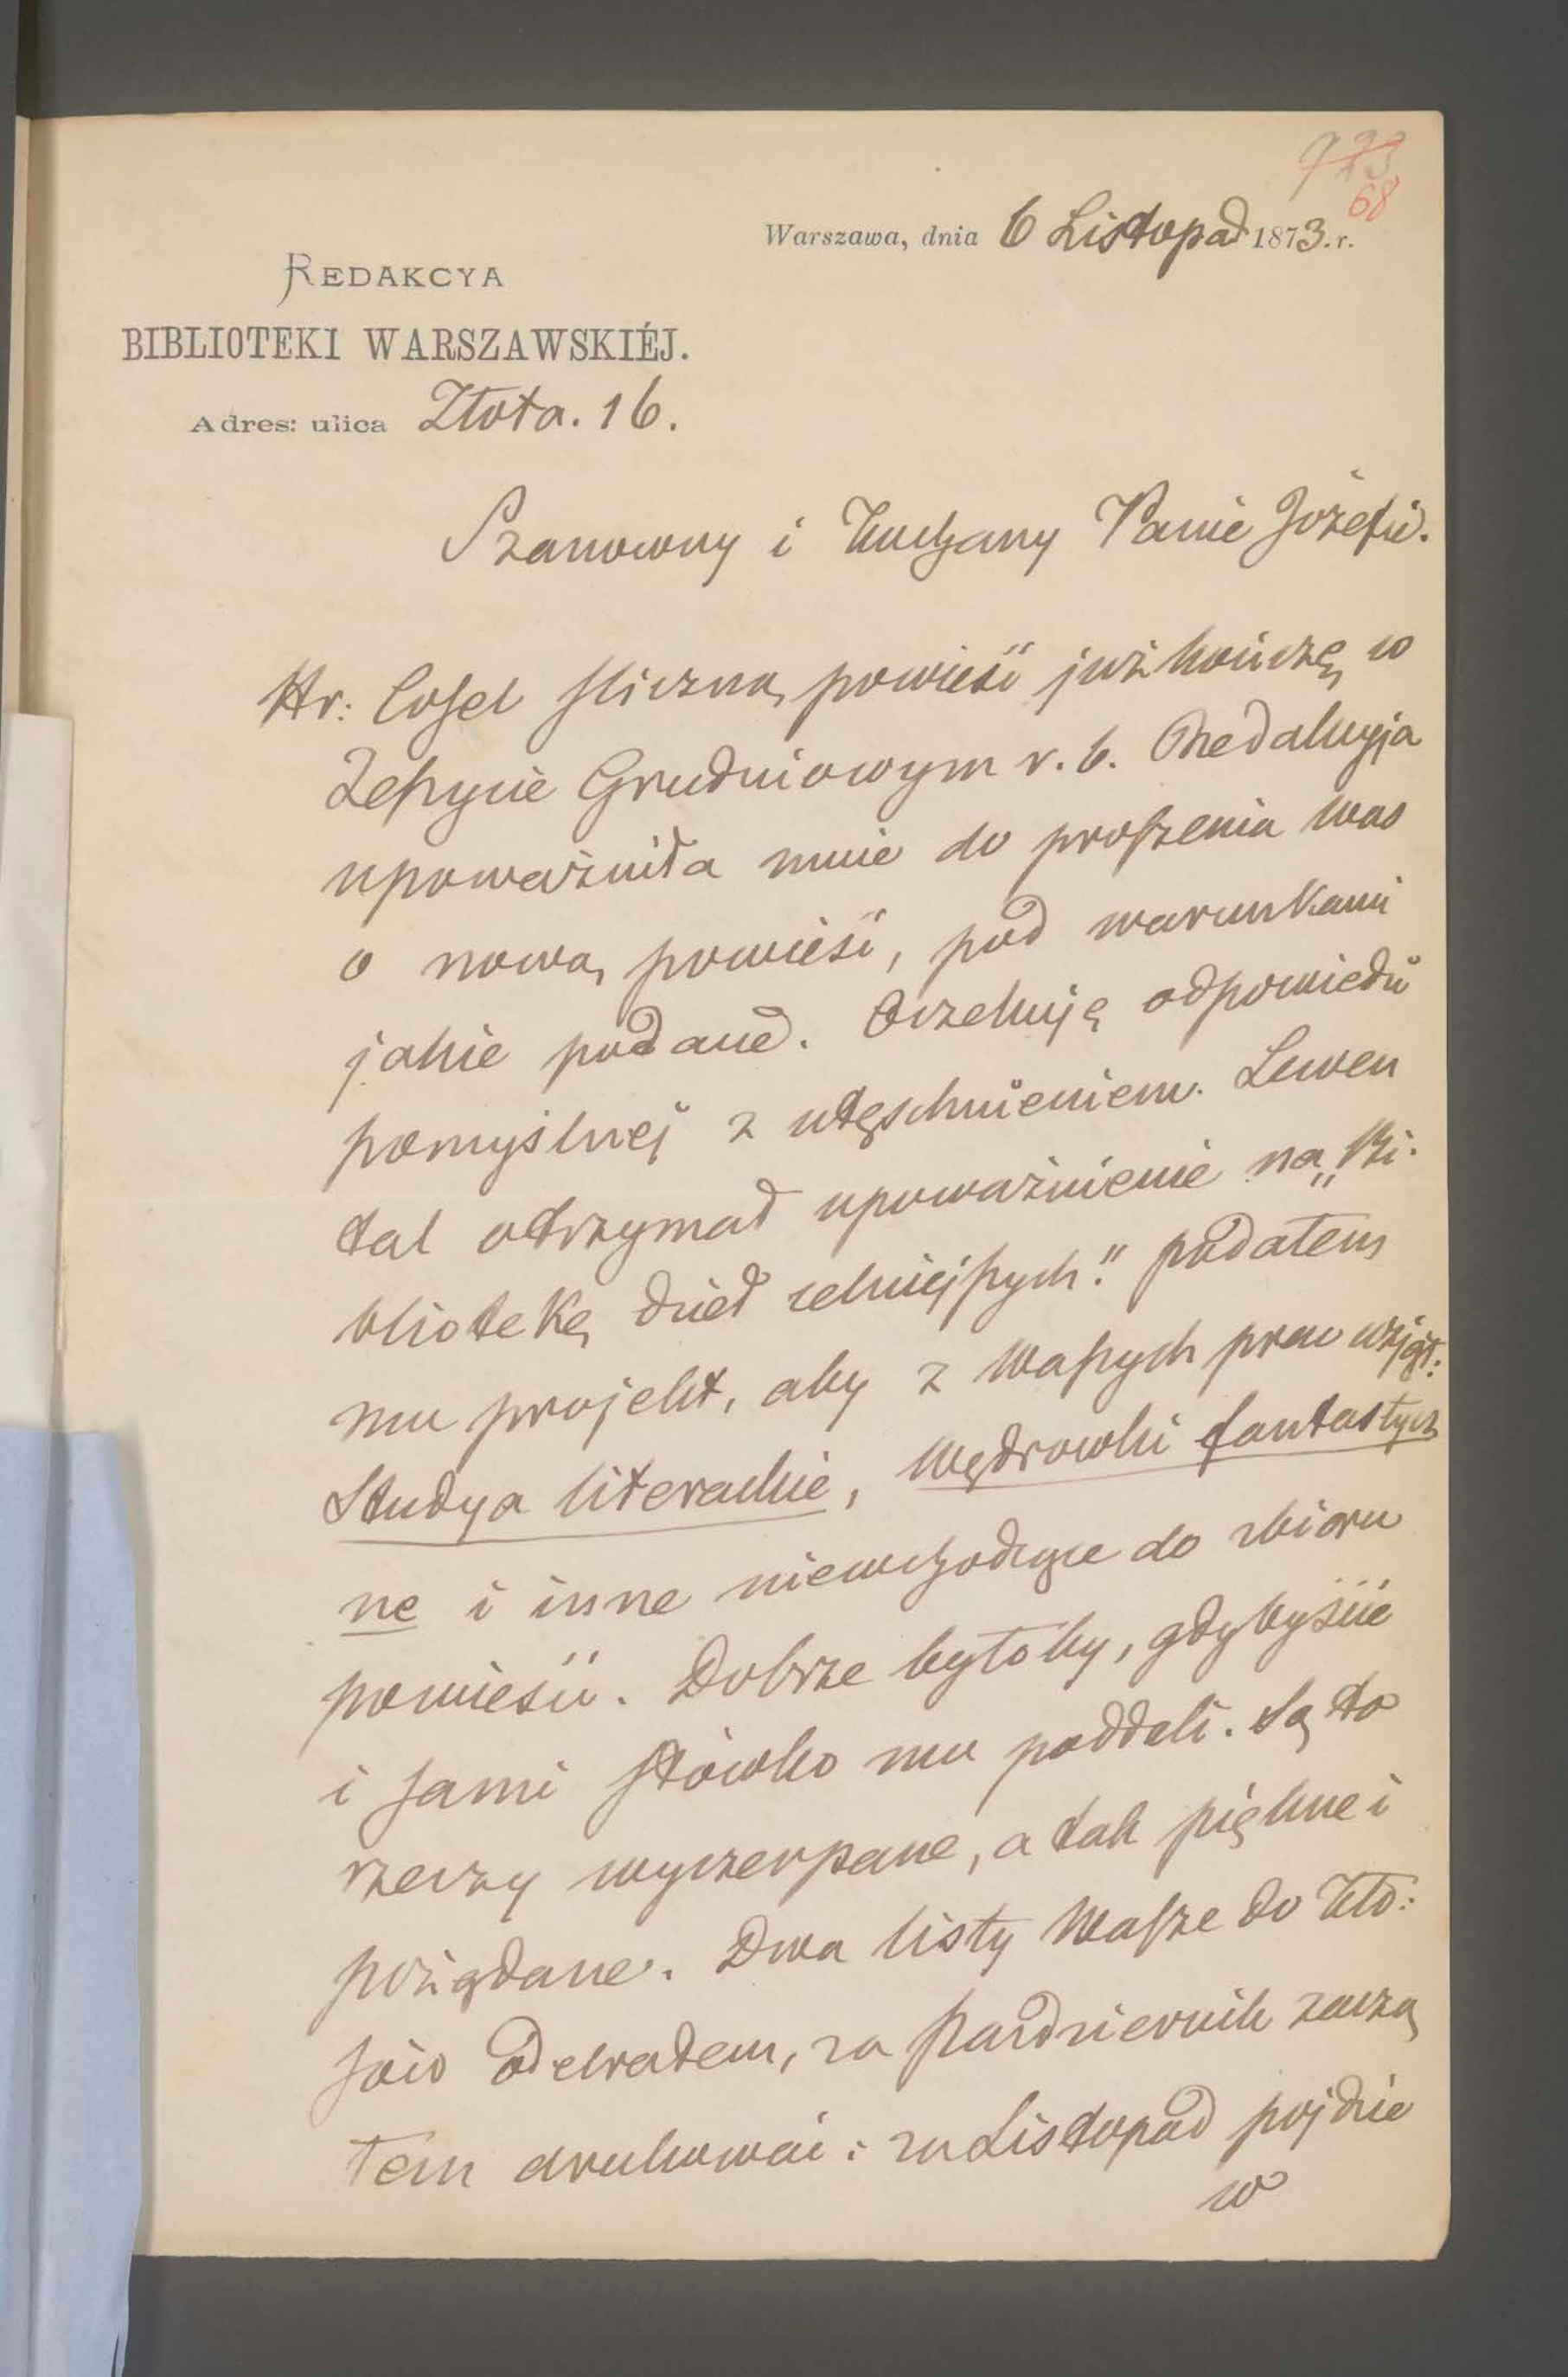 723
68
Warszawa, dnia 6 Listopad 1873. r.
REDAKCYA
BIBLIOTEKI WARSZAWSKIÉJ.
Adres: ulica Złota. 16.
Szanowny i Kochany Panie Józefie.
Hr: Cosel śliczną powieść już kończę w
Zeszycie Grudniowym r. b. Redakcyja
upoważniła mnie do proszenia was
o nową powieść, pod warunkami
jakie podane. Oczekuję odpowiedzi
pomyślnej z utęschnieniem. Lewen
tal otrzymał upoważnienie na „Bi-
bliotekę dzieł celniejszych." podałem
mu projekt, aby z Waszych prac wziął:
Studya literackie, Wędrowki fantastycz
ne i inne niewchodzące do zbioru
powieści. Dobrze byłoby, gdybyście
i sami słówko mu poddali. Są to
rzeczy wyczerpane, a tak piękne i
pożądane. Dwa listy Wasze do Kło:
sów odebrałem, za Pazdziernik zaczą
łem drukować: za Listopad pojdzie
w